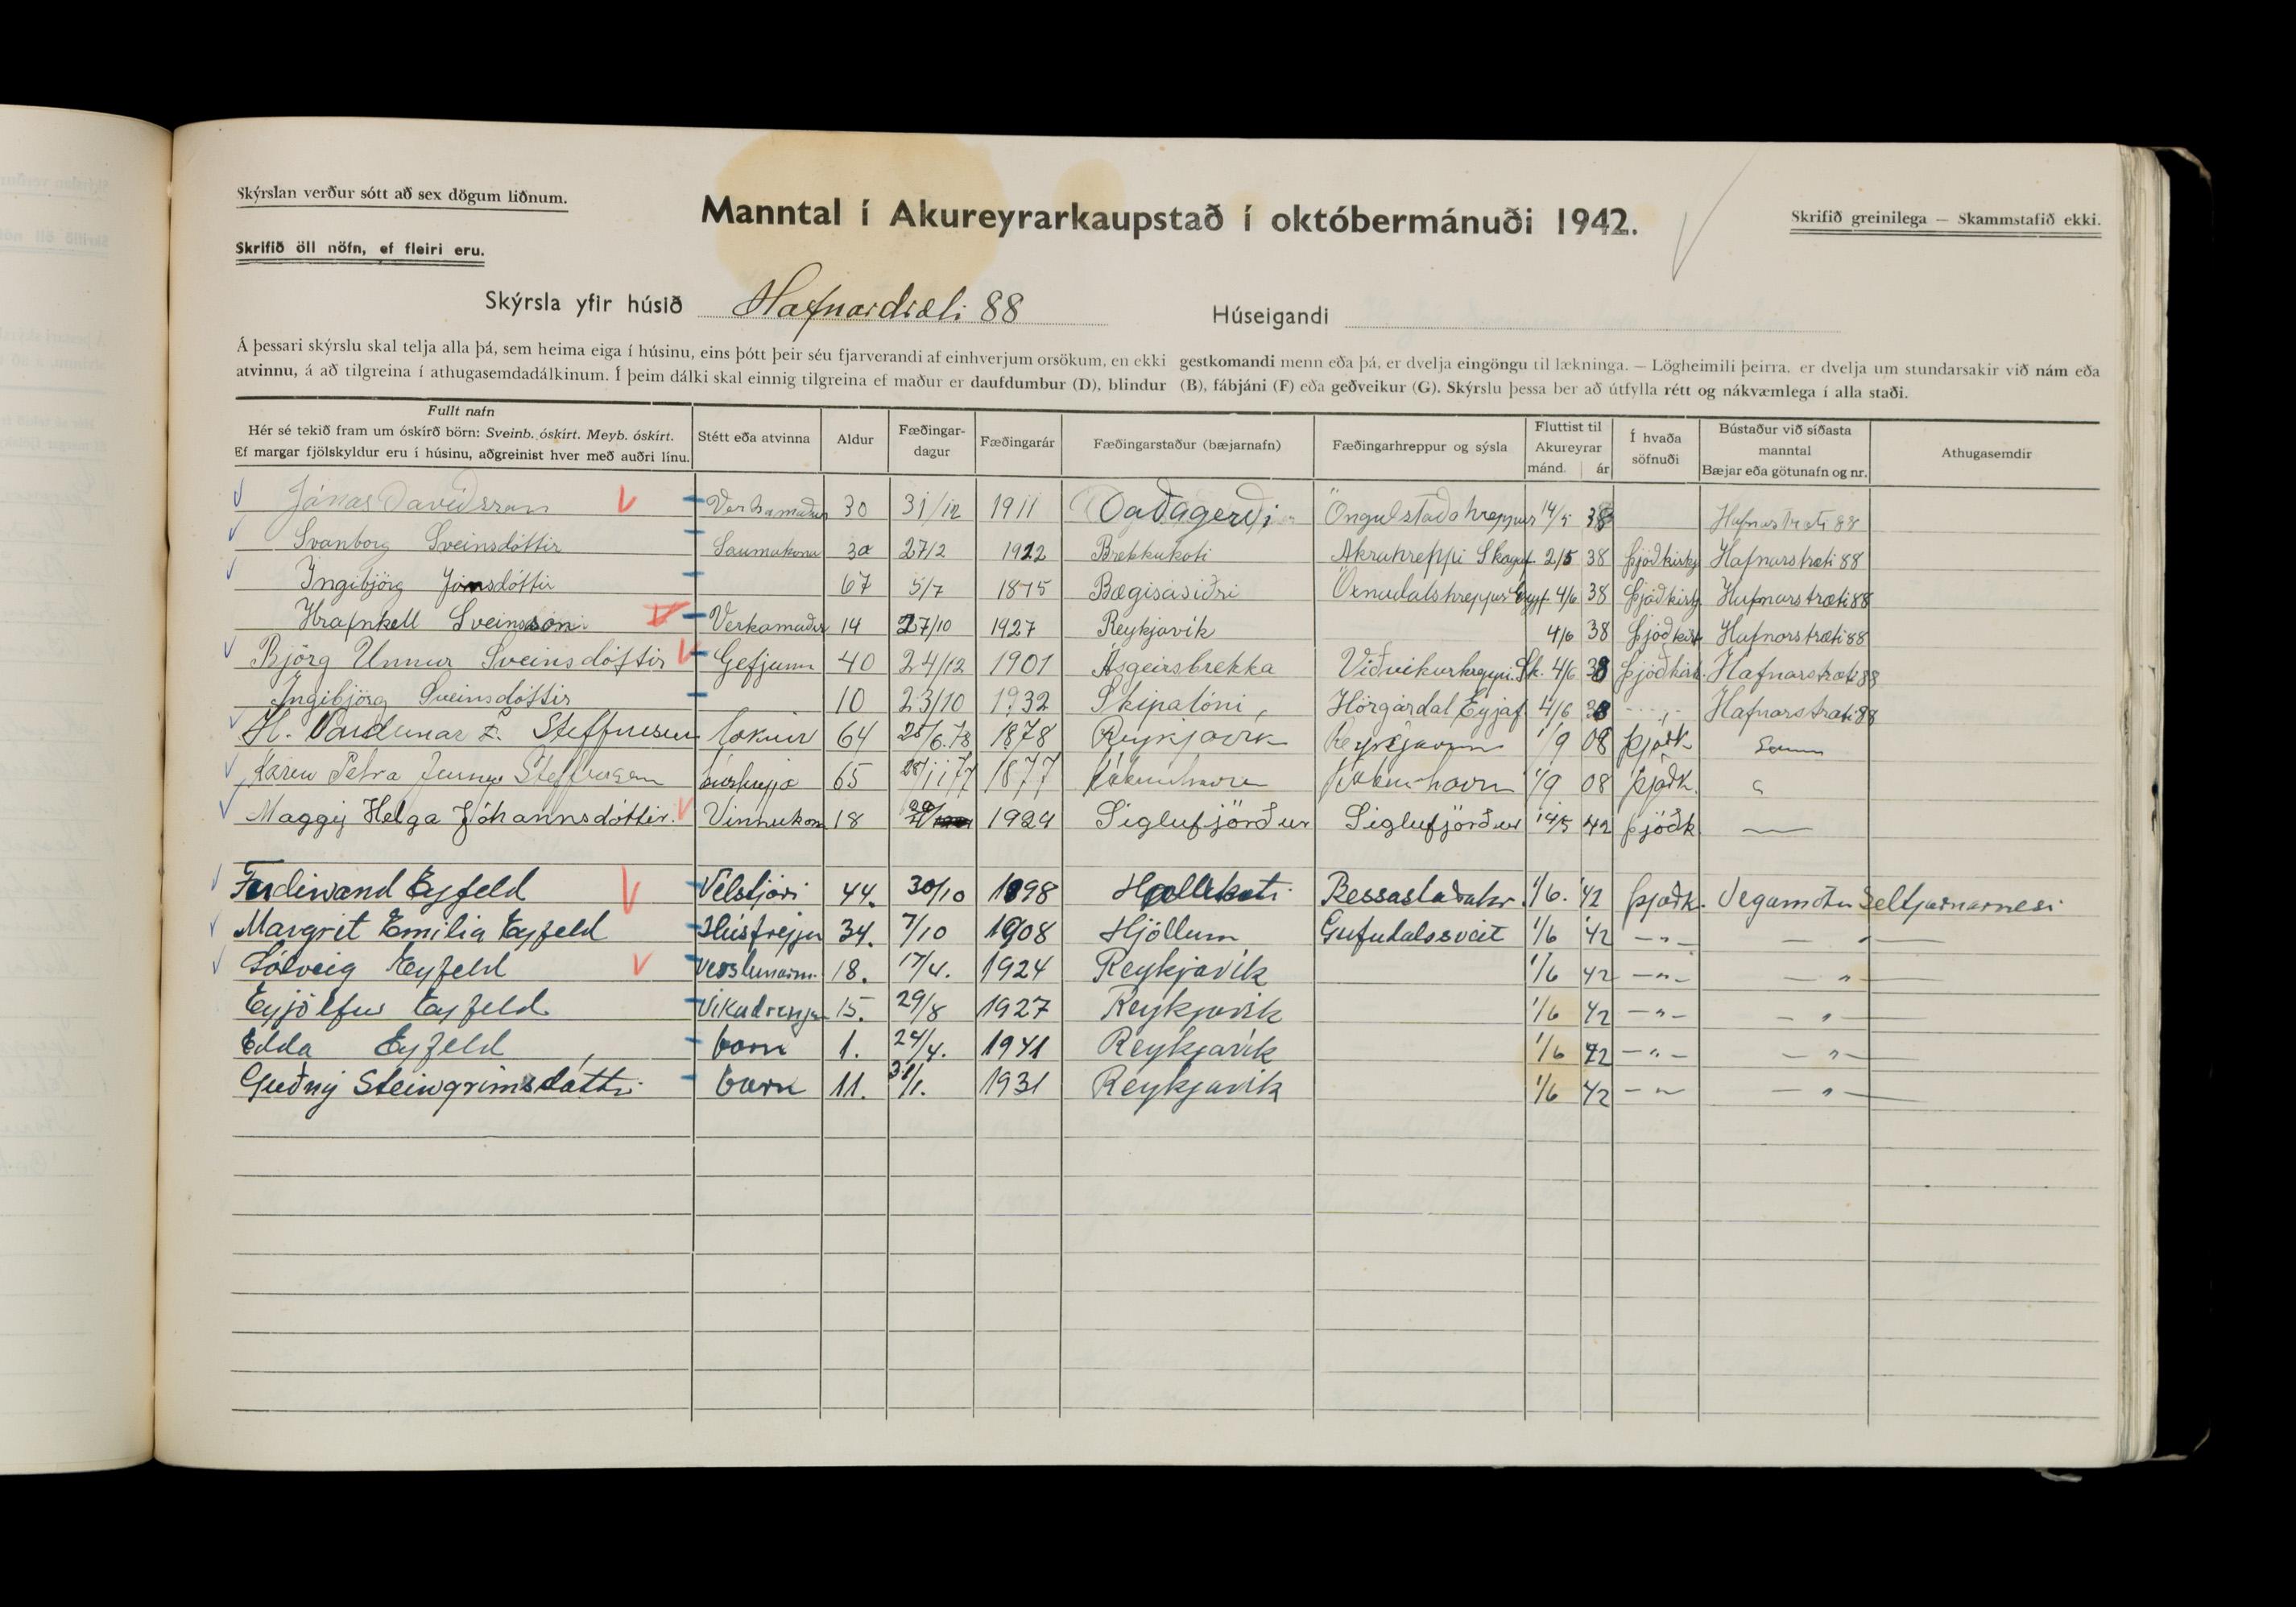 Skýrslan verður sótt að sex dögum liðnum.
Manntal í Akureyrarkaupstað í októbermánuði 1942.
Skrifið greinilega — Skammstafið ekki.
Skrifið öll nöfn, ef fleiri eru.
Skýrsla yfir húsið Hafnarstræti 88 Húseigandi
Á þessari skýrslu skal telja alla þá, sem heima eiga í húsinu, eins þótt þeir séu fjarverandi af einhverjum orsökum, en ekki gestkomandi menn eða þá, er dvelja eingöngu til lækninga. — Lögheimili þeirra, er dvelja um stundarsakir við nám eða
atvinnu, á að tilgreina í athugasemdadálkinum. Í þeim dálki skal einnig tilgreina ef maður er daufdumbur (D), blindur (B), fábjáni (F) eða geðveikur (G). Skýrslu þessa ber að útfylla rétt og nákvæmlega í alla staði.
Fullt nafn
Hér sé tekið fram um óskírð börn: Sveinb. óskírt. Meyb. óskírt.
Ef margar fjölskyldur eru í húsinu, aðgreinist hver með auðri línu.
Stétt eða atvinna
Aldur
Fæðingar-
dagur
Fæðingarár
Fæðingarstaður (bæjarnafn)
Fæðingarhreppur og sýsla
Fluttist til
Akureyrar
mánd. ár
Í hvaða
söfnuði
Bústaður við síðasta
manntal
Bæjar eða götunafn og nr.
Athugasemdir
Jónas Davíðsson Verkamaður 30 31/12 1911 Daðagerði Öngulstaðahreppur 14/5 38 Hafnarstræti 88
Svanborg Sveinsdóttir Saumakona 30 27/2 1912 Brekkukoti Akrahreppi Skagaf. 2/5 38 Þjóðkirkj Hafnarstræti 88
Ingibjörg Jónsdóttir 67 5/7 1875 Bægisásiðri Öxnadalshreppur Eyjf. 4/6 38 Þjóðkirkj Hafnarstræti 88
Hrafnkell Sveinsson Verkamaður 14 27/10 1927 Reykjavík 4/6 38 Þjóðkirk Hafnarstræti 88
Björg Unnur Sveinsdóttir Gefjunn 40 24/12 1901 Ásgeirsbrekka Viðvíkurhreppi. Sk. 4/6 38 Þjóðkirk. Hafnarstræti 88
Ingibjörg Sveinsdóttir 10 23/10 1932 Skipalóni, Hörgárdal Eyjaf 4/6 38 - „ - Hafnarstræti 88
H. Valdimar Z. Steffensen Læknir 64 25/6.78 1878 Reykjavik Reykjavik 1/9 08 Þjóðk Sama
Karen Petra Jensen Steffensen húsfreyja 65 28/11 77 1877 Köbenhavn Köbenhavn 1/9 08 Þjóðk. „
Maggý Helga Jóhannsdóttir. Vinnukona 18 1924 Siglufjörður Siglufjörður 14/5 42 Þjóðk —
Ferdinand Eyfeld Vélstjóri 44. 30/10 1898 Hallskoti Bessastaðahr. 1/6. '42 Þjóðk. Vegamótum Seltjarnarnesi
Margrét Emilia Eyfeld Húsfreyja 34. 7/10 1908 Hjöllum Gufudalssveit 1/6 '42 — „ — — „ —
Sólveig Eyfeld Verslunarm. 18. 17/4. 1924 Reykjavík 1/6 42 — „ — — „ —
Eyjólfur Eyfeld Vikadrengur 15. 29/8 1927 Reykjavík 1/6 42 — „ — — „ —
Edda Eyfeld barn 1. 24/4. 1941 Reykjavík 1/6 42 — „ — — „ —
Guðný Steingrímsdóttir barn 11. 31/1. 1931 Reykjavík 1/6 42 — „ — — „ —